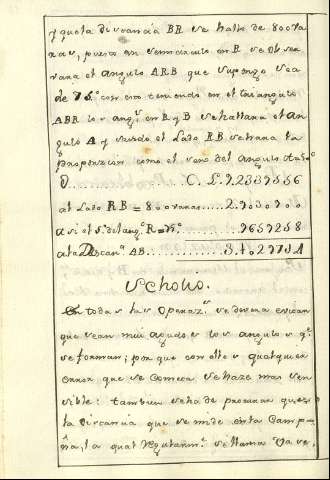 y que la distancia BR se halla de 800 va
ras, puesto un semicirculo en R se obser
vara el angulo ARB que supongo sea
de 75° con esto teniendo en el triangulo
ABR los ang.s en R y B se hallara el an
gulo A y siendo el Lado RB sehara la
proporzion como el seno del angulo A
C. L. 1.2339556
al Lado RB = 800 varas..... 2.9030900
asi el S. del ang.o R = 75°..... 9659258
a la Distan.a AB........... 3.4029714
Scholio.
En todas las Operaz.s se devera evitar
que sean mui agudos los angulos q.e
se forman; por que con ellos qualquier
error que se cometa se haze mas sen
sible: tambien se ha de procurar que
la distancia que se mide en la Campa
ña, la qual regularm.te se llama Vase,